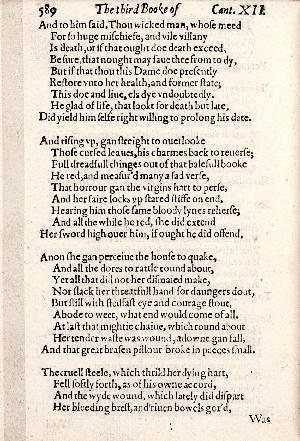 589 The third Booke of Cant. XII.
And to him said, Thou wicked man, whose meed
For so huge mischiefe, and vile villany
Is death, or if that ought doe death exceed,
Be sure, that nought may saue thee from to dy,
But if that thou this Dame doe presently
Restore vnto her health, and former state;
This doe and liue, els dye vndoubtedly.
He glad of life, that lookt for death but late,
Did yield him selfe right willing to prolong his date.
And rising vp, gan streight to ouerlooke
Those cursed leaues, his charmes back to reuerse;
Full dreadfull thinges out of that balefull booke
He red, and measur'd many a sad verse,
That horrour gan the virgins hart to perse,
And her faire locks vp stared stiffe on end,
Hearing him those same bloody lynes reherse;
And all the while he red, she did extend
Her sword high ouer him, if ought he did offend.
Anon she gan perceiue the house to quake,
And all the dores to rattle round about;
Yet all that did not her dismaied make,
Nor slack her threatfull hand for daungers dout,
But still with stedfast eye and courage stout,
Abode to weet, what end would come of all.
At last that mightie chaine, which round about
Her tender waste was wound, adowne gan fall,
And that great brasen pillour broke in peeces small.
The cruell steele, which thrild her dying hart,
Fell softly forth, as of his owne accord,
And the wyde wound, which lately did dispart
Her bleeding brest, and riuen bowels gor'd,
Was